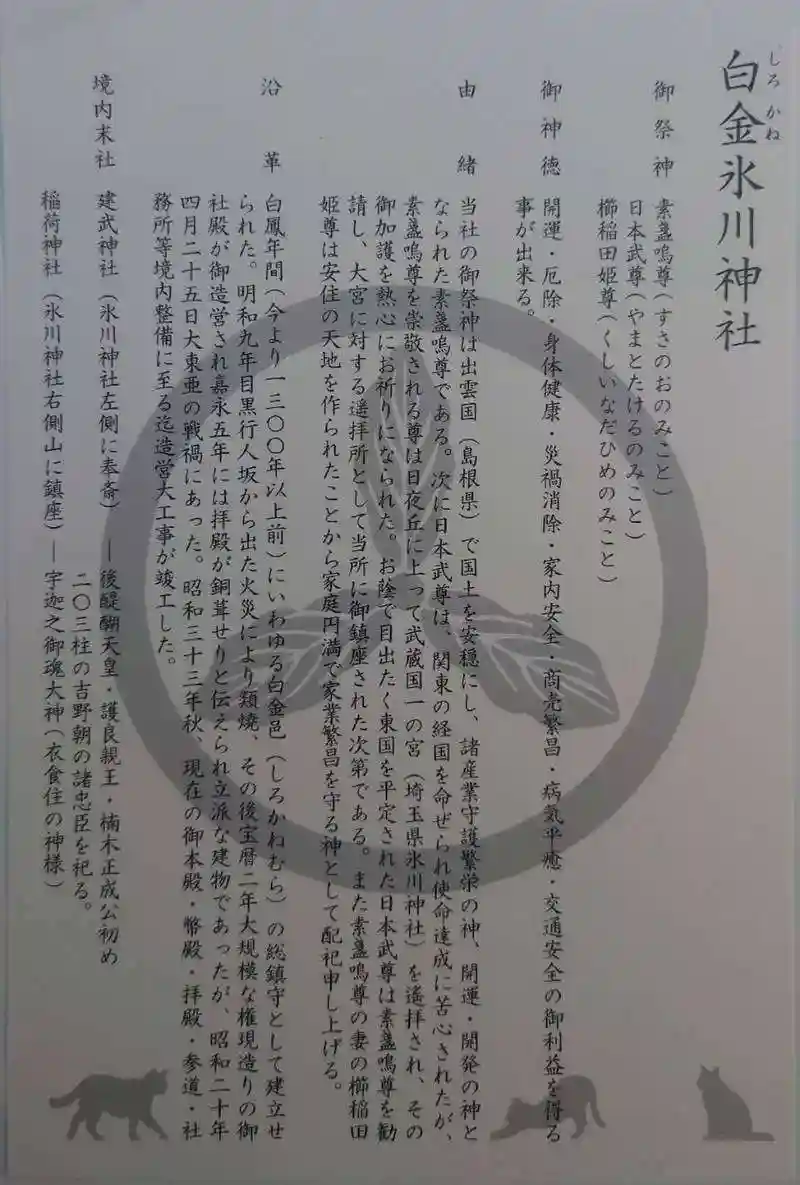 白金氷川神社
しろかね
御祭神　素盞嗚尊（すさのおのみこと）
日本武尊（やまとたけるのみこと）
櫛稲田姫尊（くしいなだひめのみこと）
御神徳　開運・厄除・身体健康・災禍消除・家内安全・商売繁昌・病気平癒・交通安全の御利益を得る
事が出来る。
由緒　当社の御祭神は出雲国（島根県）で国土を安穏にし、諸産業守護繁栄の神、開運・開発の神と
なられた素盞嗚尊である。次に日本武尊は、関東の経国を命ぜられ使命達成に苦心されたが、
素盞嗚尊を崇敬される尊は日夜丘に上って武蔵国一の宮（埼玉県氷川神社）を遙拝され、その
御加護を熱心にお祈りになられた。お陰で目出たく東国を平定された日本武尊は素盞嗚尊を勧
請し、大宮に対する遥拝所として当所に御鎮座された次第である。また素盞嗚尊の妻の櫛稲田
姫尊は安住の天地を作られたことから家庭円満で家業繁昌を守る神として配祀申し上げる。
沿革　白鳳年間（今より一三〇〇年以上前）にいわゆる白金邑（しろかねむら）の総鎮守として建立せ
られた。明和九年目黒行人坂から出た火災により類焼、その後宝暦二年大規模な権現造りの御
社殿が御造営され嘉永五年には拝殿が銅葺せりと伝えられ立派な建物であったが、昭和二十年
四月二十五日大東亜の戦禍にあった。昭和三十三年秋、現在の御本殿・幣殿・拝殿・参道・社
務所等境内整備に至る迄造営大工事が竣工した。
境内末社　建武神社（氷川神社左側に奉斎）―後醍醐天皇・護良親王・楠木正成公初め
二〇三柱の吉野朝の諸忠臣を祀る。
稲荷神社（氷川神社右側山に鎮座）―宇迦之御魂大神（衣食住の神様）